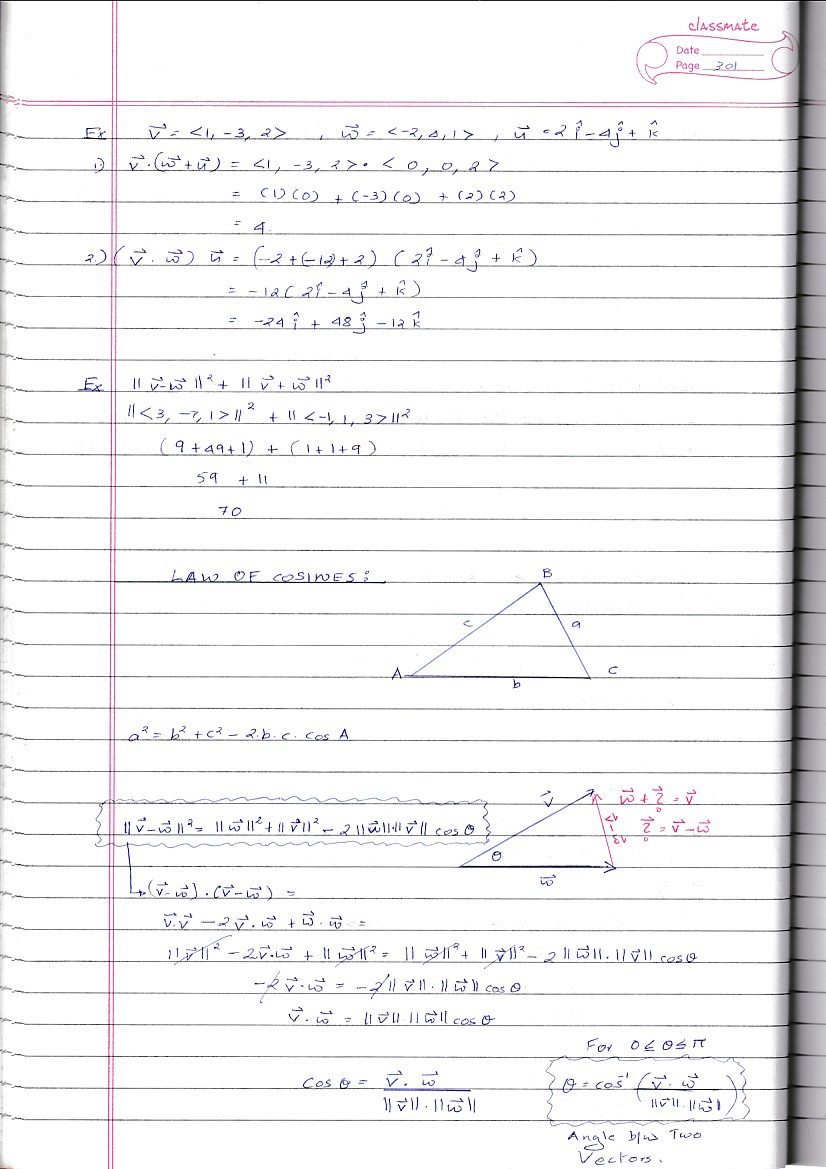 classmate
Date
Page 301
Ex v⃗ = <1, -3, 2> , w⃗ = <-2, 4, 1> , u⃗ = 2î - 4ĵ + k̂
1) v⃗·(w⃗+u⃗) = <1, -3, 2> • <0, 0, 2>
= (1)(0) + (-3)(0) + (2)(2)
= 4.
2.) (v⃗ · w⃗) u⃗ = (-2 + (-12) + 2) (2î - 4ĵ + k̂)
= -12(2î - 4ĵ + k̂)
= -24î + 48ĵ - 12k̂
Ex ||v⃗-w⃗||² + ||v⃗+w⃗||²
||<3, -7, 1>||² + ||<-1, 1, 3>||²
(9+49+1) + (1+1+9)
59 + 11
70
LAW OF COSINES:
B
c a
A C
b
a² = b² + c² - 2·b·c· cos A
v⃗ w⃗ + ? = v⃗
||v⃗-w⃗||² = ||w⃗||² + ||v⃗||² - 2||w⃗||·||v⃗|| cos θ
v⃗-w⃗ ? = v⃗-w⃗
θ
w⃗
(v⃗-w⃗)·(v⃗-w⃗) =
v⃗·v⃗ - 2v⃗·w⃗ + w⃗·w⃗ =
||v⃗||² - 2v⃗·w⃗ + ||w⃗||² = ||w⃗||² + ||v⃗||² - 2||w⃗||·||v⃗|| cos θ
-2v⃗·w⃗ = -2||v⃗||·||w⃗|| cos θ
v⃗·w⃗ = ||v⃗||·||w⃗|| cos θ
For 0 ≤ θ ≤ π
cos θ = v⃗·w⃗ / ||v⃗||·||w⃗||
θ = cos⁻¹ (v⃗·w⃗ / ||v⃗||·||w⃗||)
Angle b/w Two
Vectors.